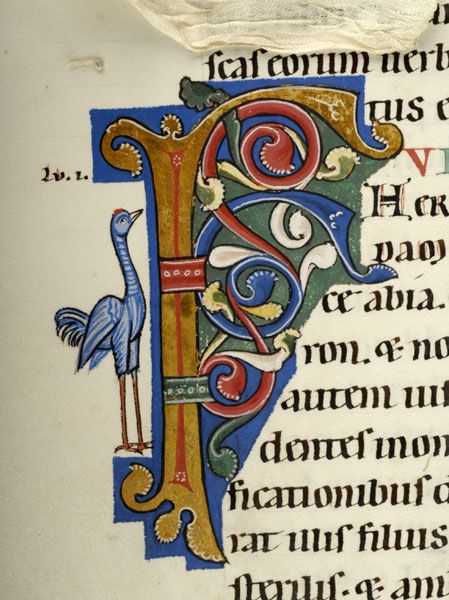 scas eorum uerb
tus e
Lu. i.
F VI
HER
ce abia.
ron. & no
autem iuſ
dentes in om
ficationibus d
rat illis filius
sterilis. & am